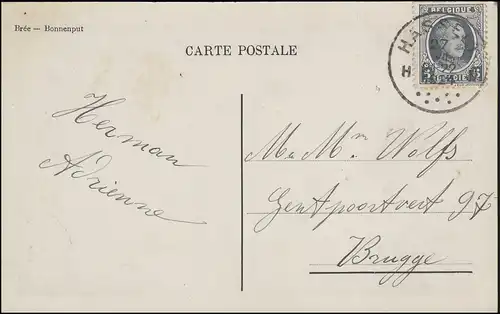 Brée — Bonnenput
CARTE POSTALE
BELGIQUE
BELGIË
5 5
HA
H
Herman
Adrienne
M. M.m Wolfs
Gentpoortvert 97
Brugge